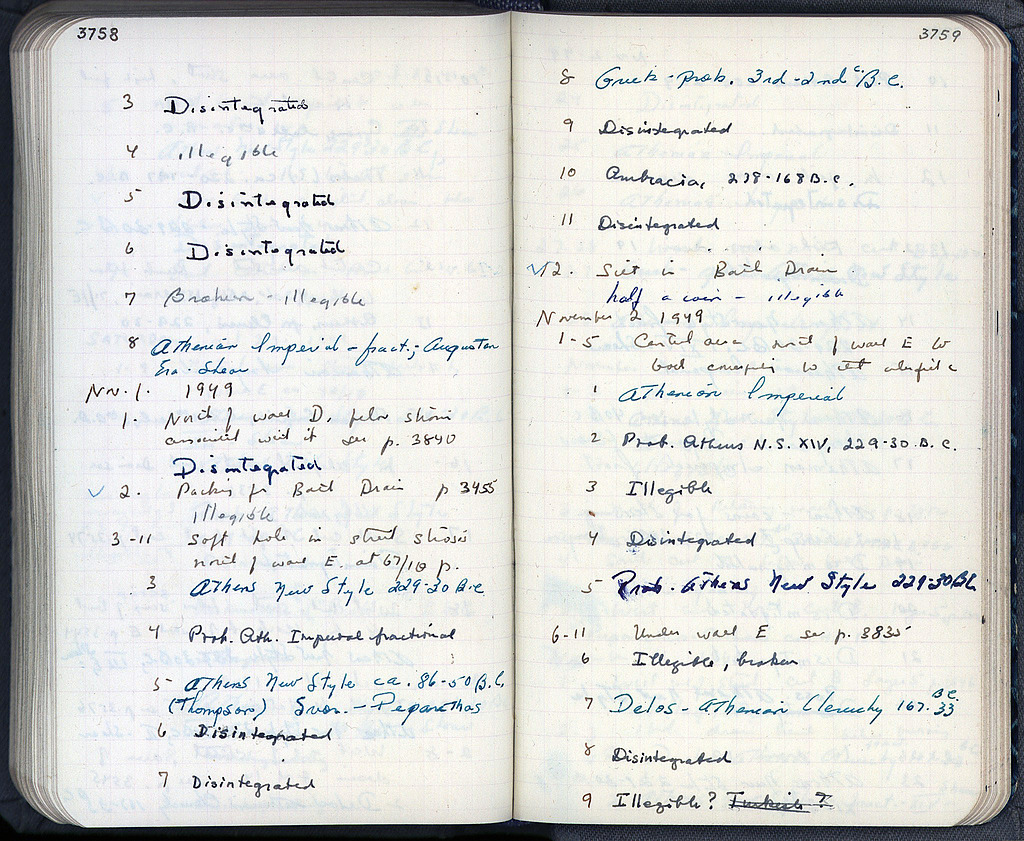 3758
3 Disintegrated
4 illegible
5 Disintegrated
6 Disintegrated
7 Broken - illegible
8 Athenian Imperial - fract.; Augustan
Era - Shear
Nov. 1. 1949
1. North of wall D, pebn strosis
associated with it see p. 3840
Disintegrated
✓ 2. Packing for Basil Drain p 3455
illegible
3-11 Soft hole in street strosis
north of wall E. at 67/10 p.
3 Athens New Style 229-30 B.C
4 Prob. Ath. Imperial fractional
5 Athens New Style ca. 86-50 B.C.
(Thompson) Svor. - Peparethos
6 Disintegrated
7 Disintegrated
3759
8 Greek - prob. 3rd - 2nd c. B.C.
9 Disintegrated
10 Ambracia, 238-168 B.C.
11 Disintegrated
✓ 2. Silt in Basil Drain
half a coin - illegible
November 2 1949
1-5 area north of wall E
1 Athenian Imperial
2 Prob. Athens N.S. XIV, 229-30 B.C.
3 Illegible
4 Disintegrated
5 Prob. Athens New Style 229-30 B.C.
6-11 Under wall E see p. 3835
6 Illegible, broken
7 Delos - Athenian Cleruchy 167-33 B.C.
8 Disintegrated
9 Illegible? Turkish ?